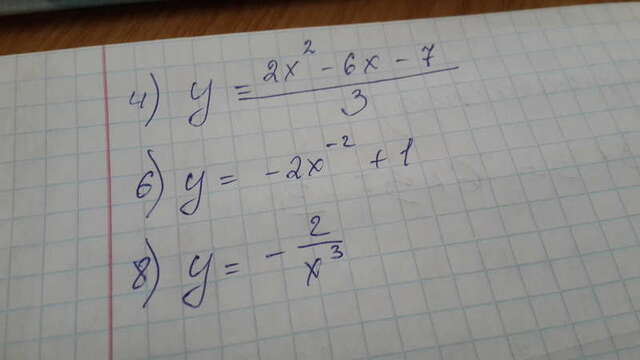 4) y = (2x² - 6x - 7)/3
6) y = -2x⁻² + 1
8) y = - 2/x³